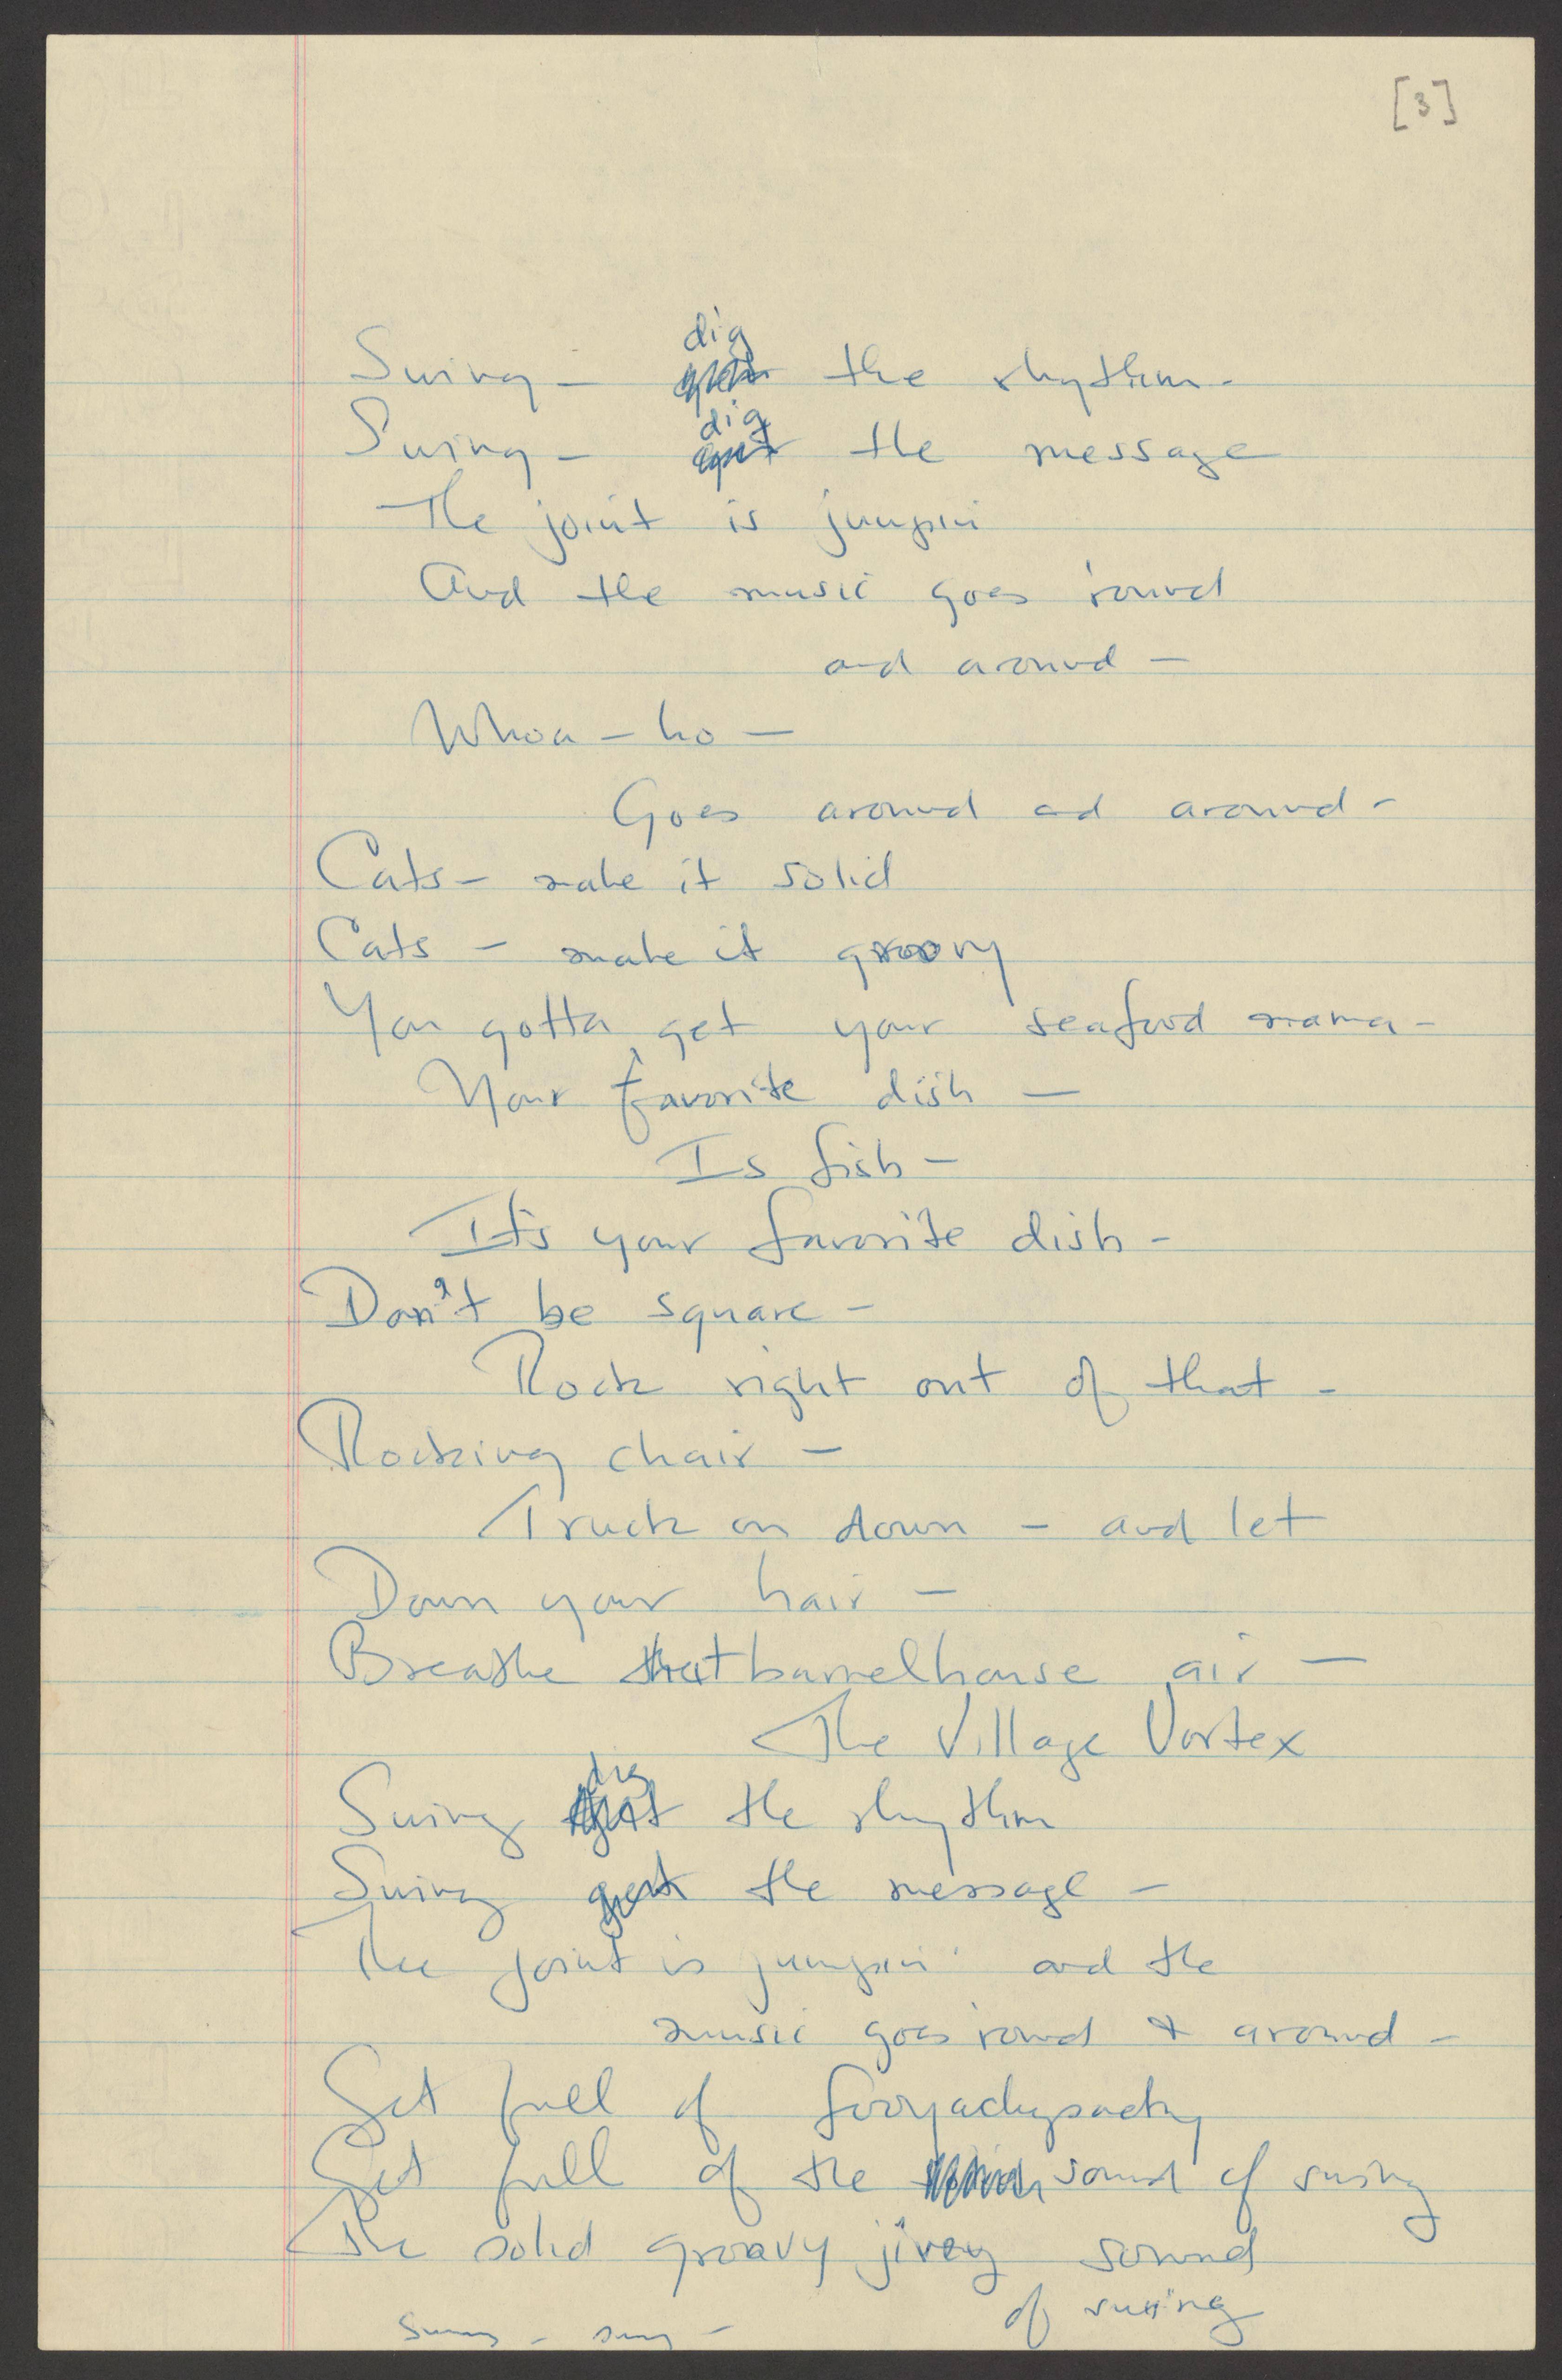 [3]
dig
Swing - the rhythm -
dig
Swing - get the message
The joint is jumpin
And the music goes 'round
and around -
Whoa - ho -
Goes around and around -
Cats - make it solid
Cats - make it groovy
You gotta get your seafood mama -
Your favorite dish -
Is fish -
It's your favorite dish -
Don't be square -
Rock right out of that -
Rocking chair -
Truck on down - and let
Down your hair -
Breathe that barrelhouse air -
The Village Vortex
dig
Swing the rhythm
Swing get the message -
The joint is jumpin' and the
music goes round & around -
Get full of
Get full of the sound of swing
The solid groovy jivey sound
of swing
Swing - swing -